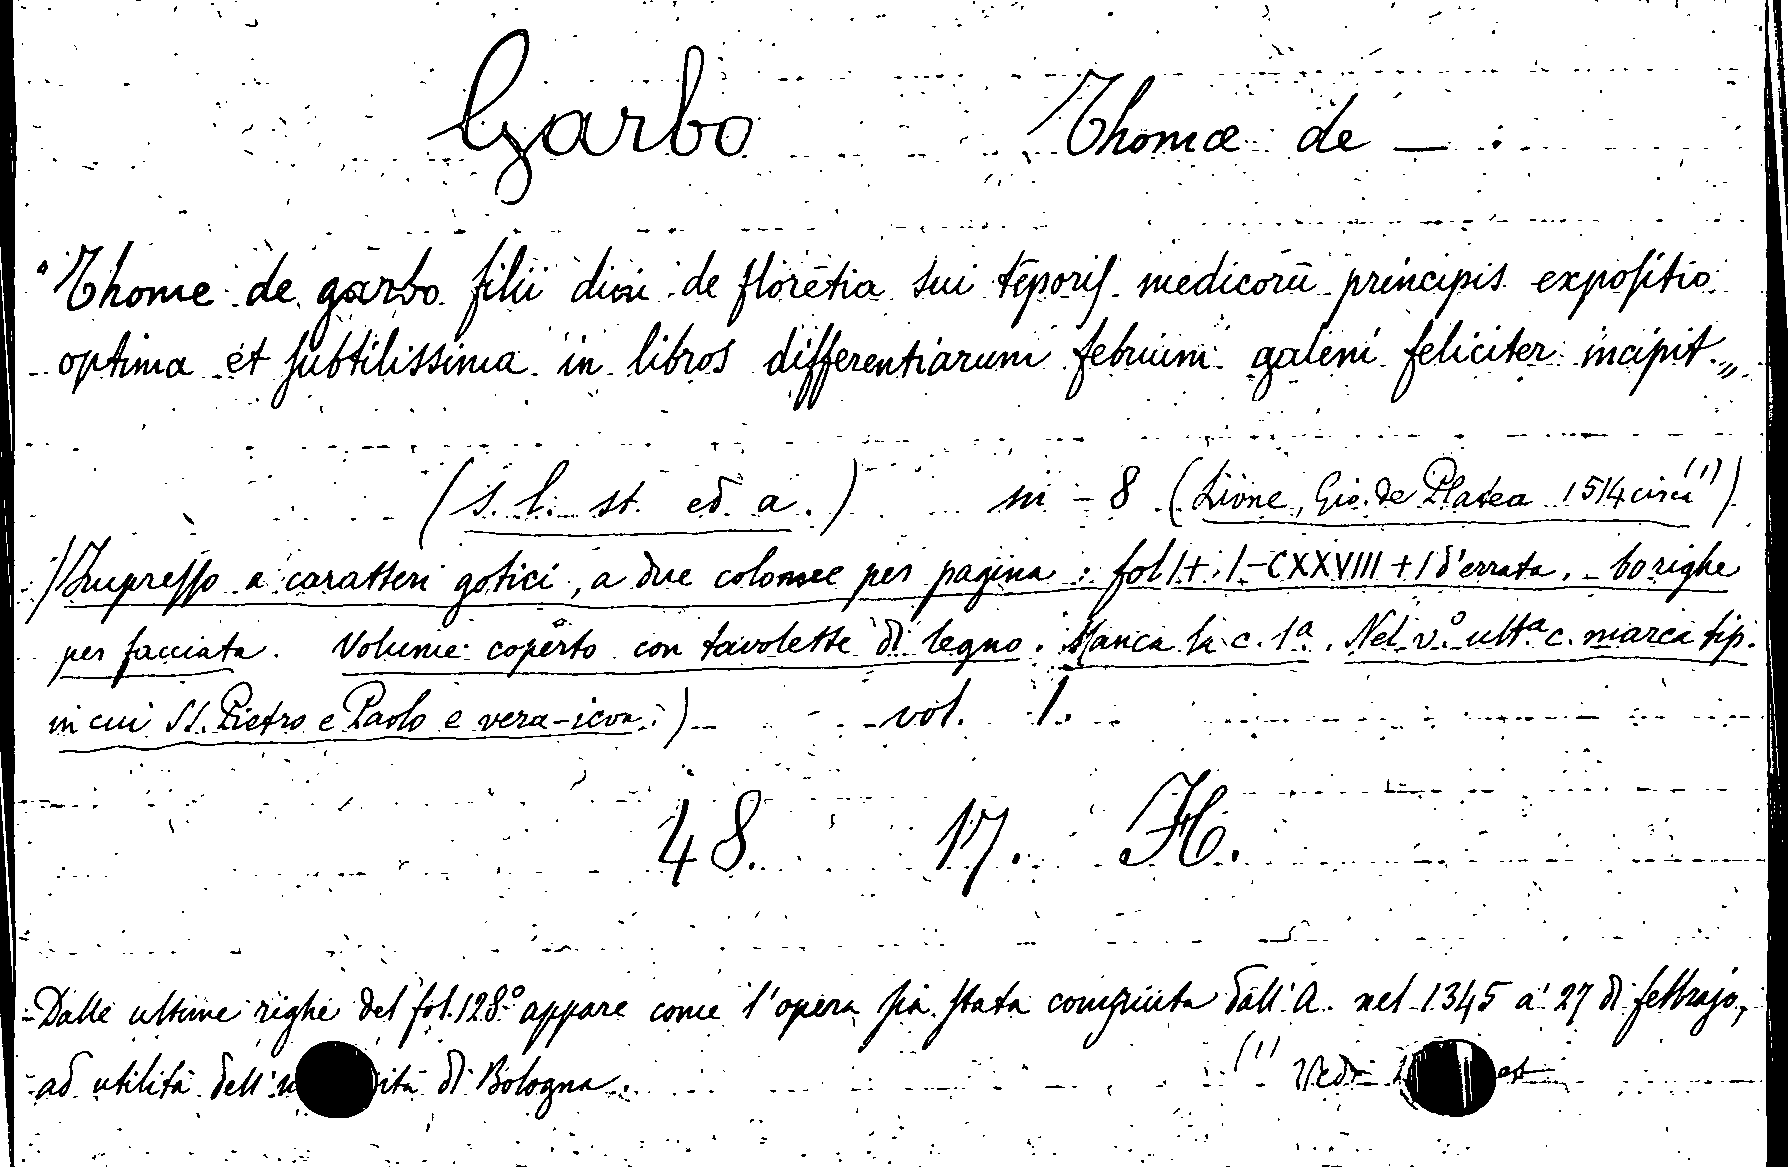 Garbo Thomæ de — .
"Thome de garbo filii dini de florētia sui tēporiſ medicorū principis expoſitio
optima et ſubtilissima in libros differentiarum febrium galeni feliciter incipit."
(s. l. st. ed a.) in - 8 (Lione, Gio. de Platea 1514 circa (1))
(Impreſſo a caratteri gotici, a due colonne per pagina : fol 1 + 1-CXXVIII + 1 d'errata. - 60 righe
per facciata. Volume coperto con tavolette di legno. Manca la c. 1ª. Nel vº. ultª c. marca tip.
in cui SS. Pietro e Paolo e vera-icon.) vol. 1.
48. 17. H.
Dalle ultime righe del fol. 128º appare come l'opera ſia ſtata compiuta dall'A. nel 1345 a' 27 di febbrajo,
ad utilità dell' di Bologna. (1) Vedi